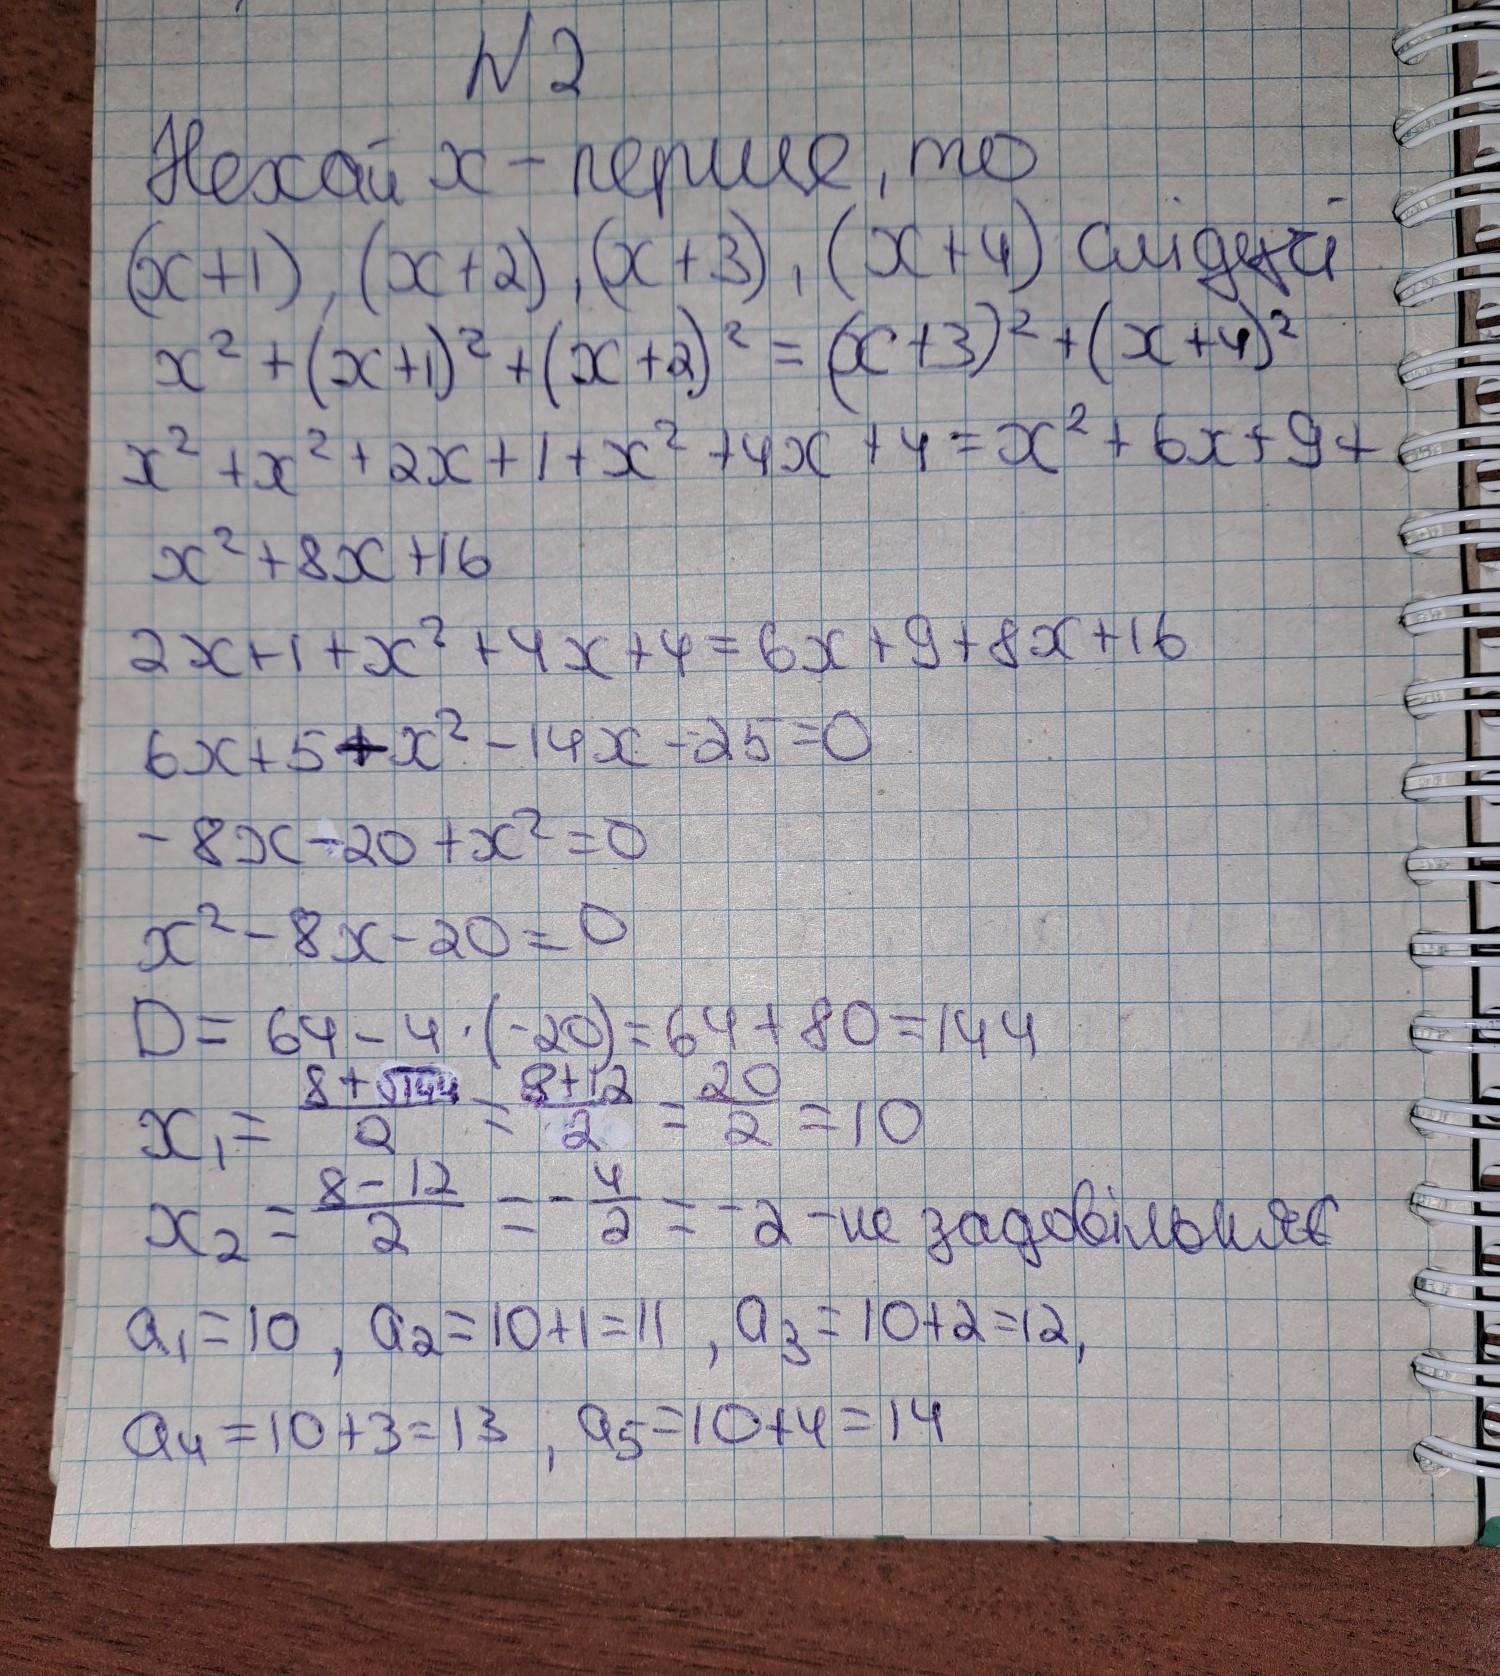 N2
Нехай x - перше, то
(x+1), (x+2), (x+3), (x+4) слідуючі
x² + (x+1)² + (x+2)² = (x+3)² + (x+4)²
x² + x² + 2x + 1 + x² + 4x + 4 = x² + 6x + 9 +
x² + 8x + 16
2x + 1 + x² + 4x + 4 = 6x + 9 + 8x + 16
6x + 5 + x² - 14x - 25 = 0
- 8x - 20 + x² = 0
x² - 8x - 20 = 0
D = 64 - 4 · (-20) = 64 + 80 = 144
x₁ = (8+√144)/2 = (8+12)/2 = 20/2 = 10
x₂ = (8-12)/2 = -4/2 = -2 - не задовільняє
a₁ = 10, a₂ = 10+1 = 11, a₃ = 10+2 = 12,
a₄ = 10+3 = 13, a₅ = 10+4 = 14